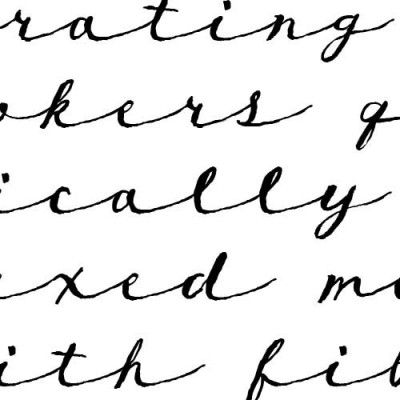 rating
okers q
ically
xed m
ith fi